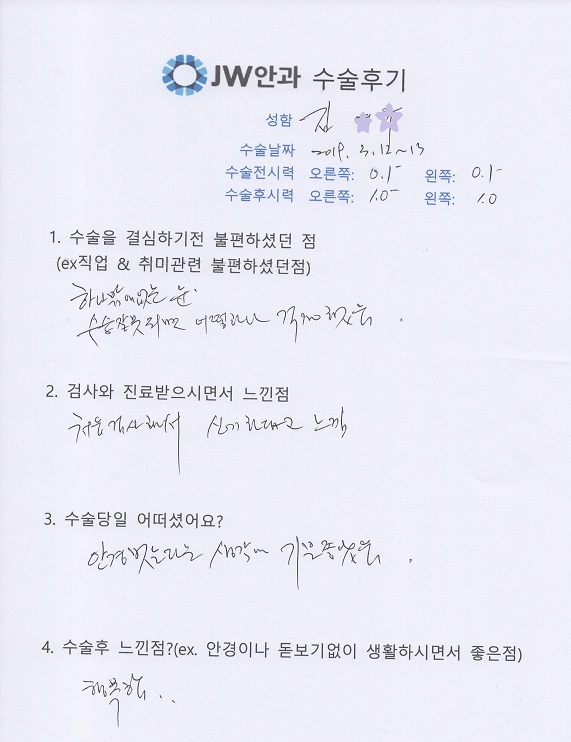 JW안과 수술후기
성함 김
수술날짜 2019. 3. 12~13
수술전시력 오른쪽: 0.1 왼쪽: 0.1
수술후시력 오른쪽: 1.0 왼쪽: 1.0
1. 수술을 결심하기전 불편하셨던 점
(ex직업 & 취미관련 불편하셨던점)
하나밖에없는 눈.
수술잘못되면 어떨까나 걱정했음.
2. 검사와 진료받으시면서 느낀점
처음검사해서 신기하다고 느낌
3. 수술당일 어떠셨어요?
안경벗는다는 생각에 기분좋았음.
4. 수술후 느낀점?(ex. 안경이나 돋보기없이 생활하시면서 좋은점)
행복함..